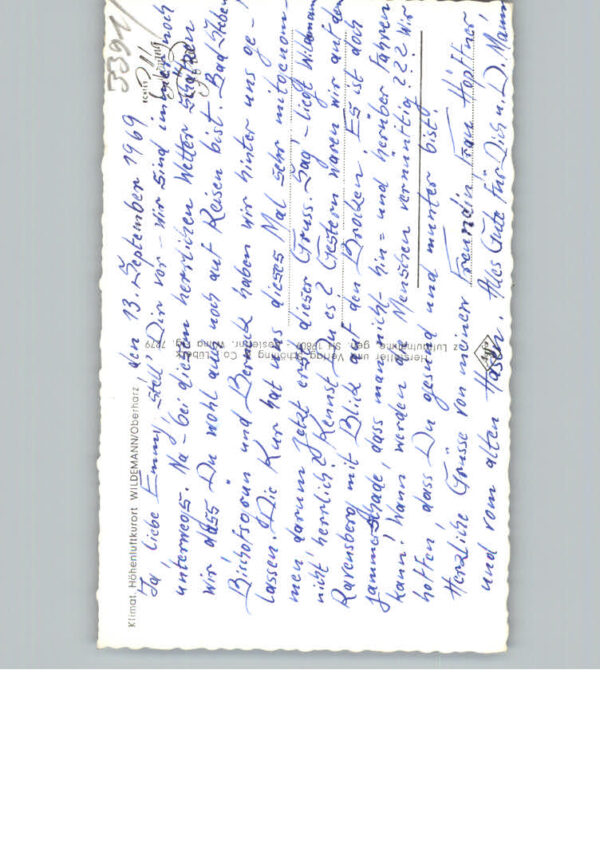 5391/
ECHTE
den 13. September 1969
Klimat. Höhenluftkurort WILDEMANN/Oberharz
Ja' liebe Emmy, stell' Dir vor – wir sind immer noch
unterwegs. Na – bei diesem herrlichen Wetter schätzen
wir dass Du wohl auch noch auf Reisen bist. Bad Steben
Bischofsgrün und Berneck haben wir hinter uns ge-
lassen. Die Kur hat uns dieses Mal sehr mitgenom-
men' darum jetzt erst dieser Gruss. Sag' – liegt Wildemann
nicht herrlich? Kennst Du es? Gestern waren wir auf dem
Ravensberg mit Blick auf den Brocken. Es ist doch
jammerschade, dass man nicht hin = und herüber fahren
kann! Wann werden die Menschen vernünftig??? Wir
hoffen' dass Du gesund und munter bist!
Herzliche Grüsse von meiner Freundin Frau Höpffner
und vom alten Hasen. Alles Gute für Dich u. D. Mann!
Hersteller und Verlag Schöning & Co., Lübeck
az Luftaufnahme, gen. SH 1980